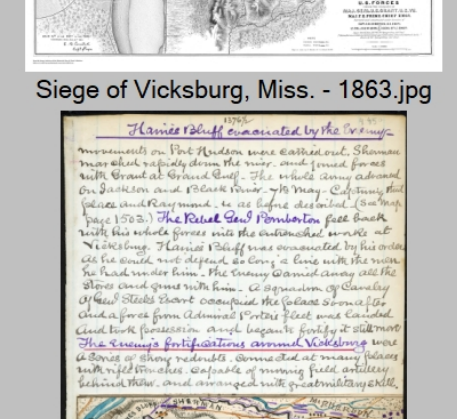 U.S. FORCES
Siege of Vicksburg, Miss. - 1863.jpg
Haines Bluff evacuated by the Enemy
movements on Port Hudson were carried out. Sherman
marched rapidly down the river and joined forces
with Grant at Grand Gulf. The whole army advanced
on Jackson and Black River - 7th May - Capturing that
place and Raymond as before described (See Map
page 1503.) The Rebel Genl Pemberton fell back
with his whole forces into the entrenched works at
Vicksburg. Haines Bluff was evacuated by his order
as he could not defend so long a line with the men
he had under him. The Enemy carried away all the
Stores and guns with him. A squadron of Cavalry
of Genl Steels Escort occupied the place soon after
and a force from Admiral Porters fleet was landed
And took possession and began to fortify it still more
The Enemy's fortifications around Vicksburg were
a series of strong redoubts. Connected at many places
with rifle trenches. Capable of moving field artillery
behind them. and arranged with great military skill.
SHERMAN